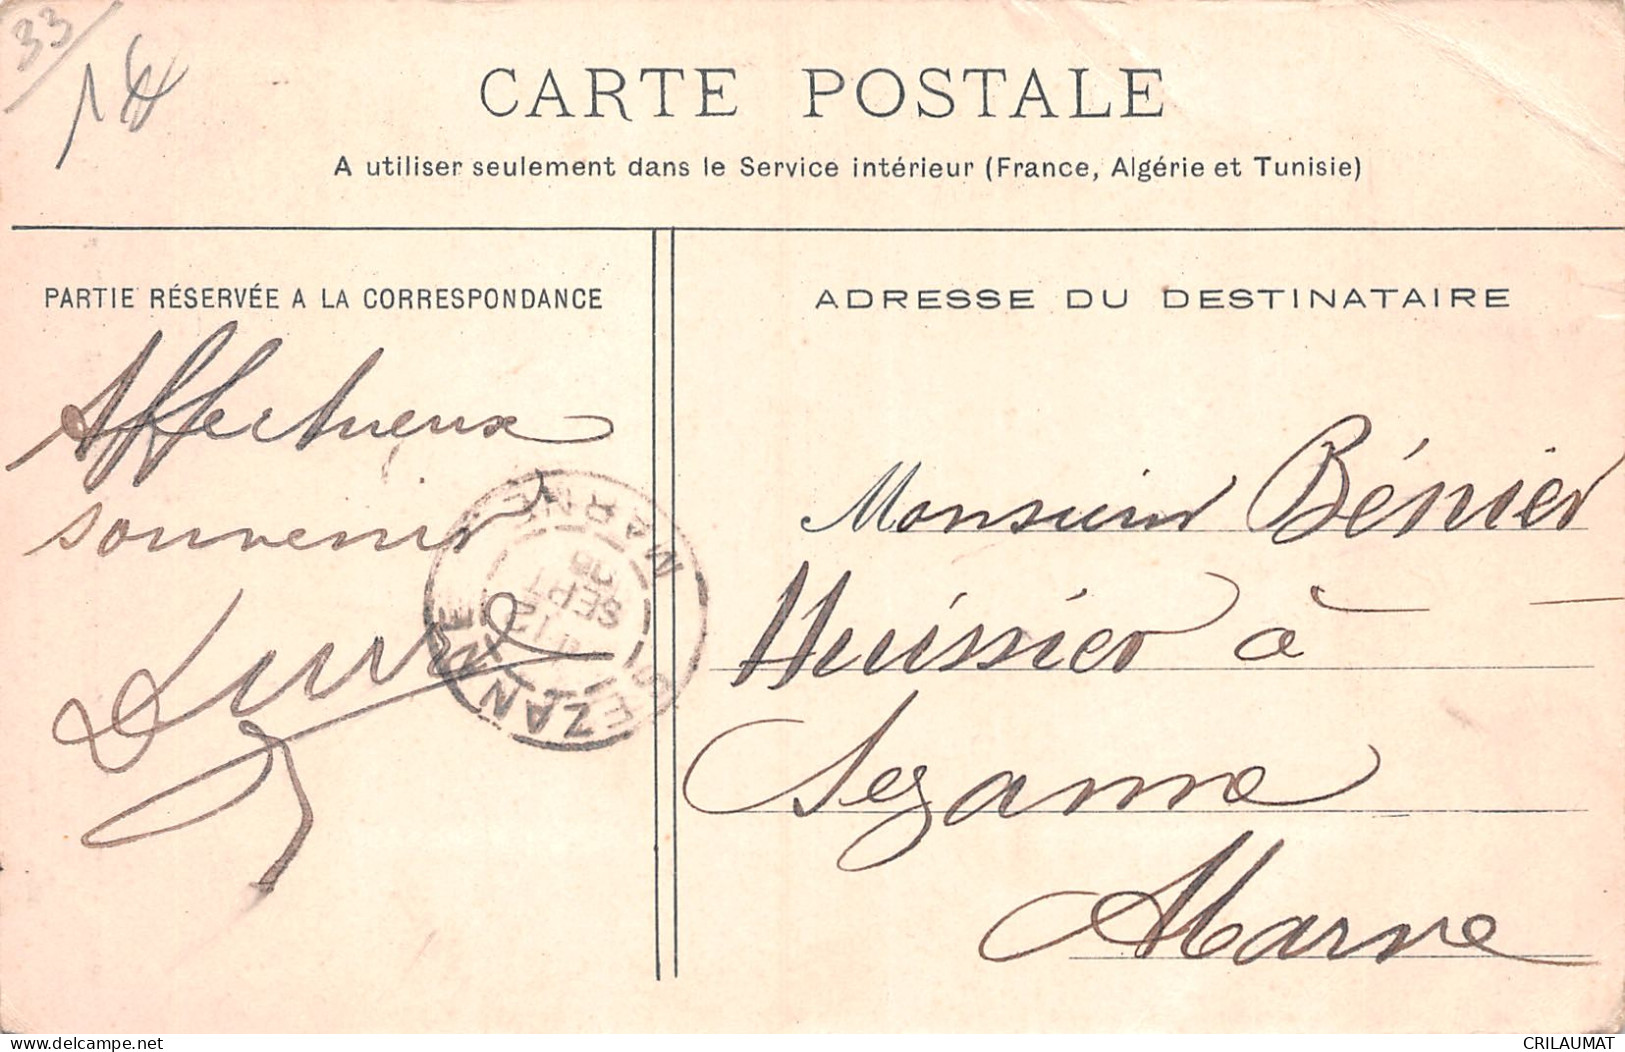 33
CARTE POSTALE
A utiliser seulement dans le Service intérieur (France, Algérie et Tunisie)
PARTIE RÉSERVÉE A LA CORRESPONDANCE
Affectueux
souvenir
ADRESSE DU DESTINATAIRE
Monsieur Bénier
Huissier à
Sezanne
Marne
SEZANNE
MARNE
SEPT
delcampe.net
CRILAUMAT